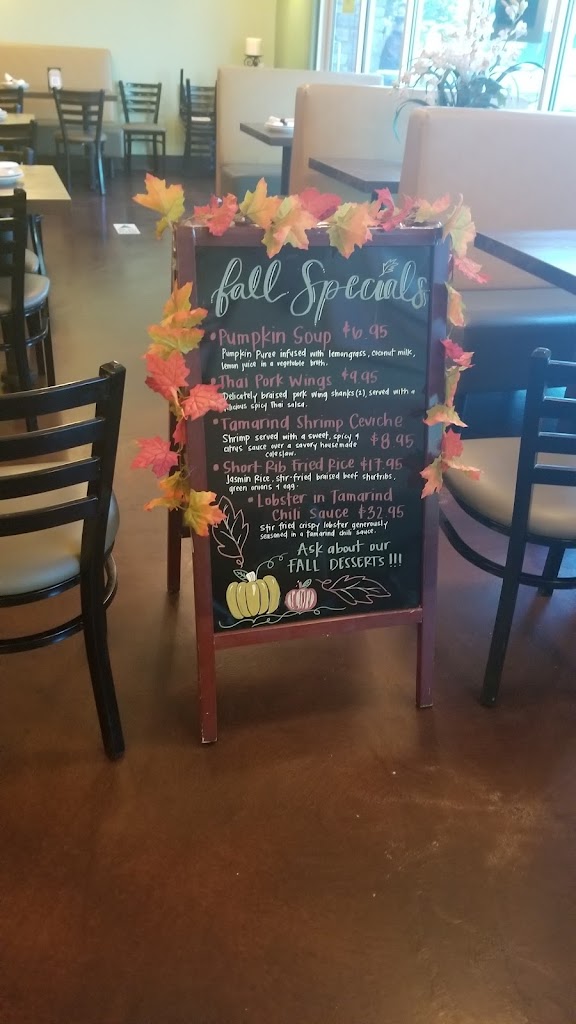 fall Specials
• Pumpkin Soup $6.95
Pumpkin Puree infused with lemongrass, coconut milk,
lemon juice in a vegetable broth.
• Thai Pork Wings $9.95
Delicately braised pork wing shanks (2), served with a
spicy Thai salsa.
• Tamarind Shrimp Ceviche
Shrimp served with a sweet, spicy &
citrus sauce over a savory housemade
coleslaw.
$8.95
• Short Rib Fried Rice $17.95
Jasmin Rice, stir-fried braised beef shortribs,
green onions & egg.
• Lobster in Tamarind
Chili Sauce $32.95
Stir fried crispy lobster generously
seasoned in a tamarind chili sauce.
Ask about our
FALL DESSERTS!!!